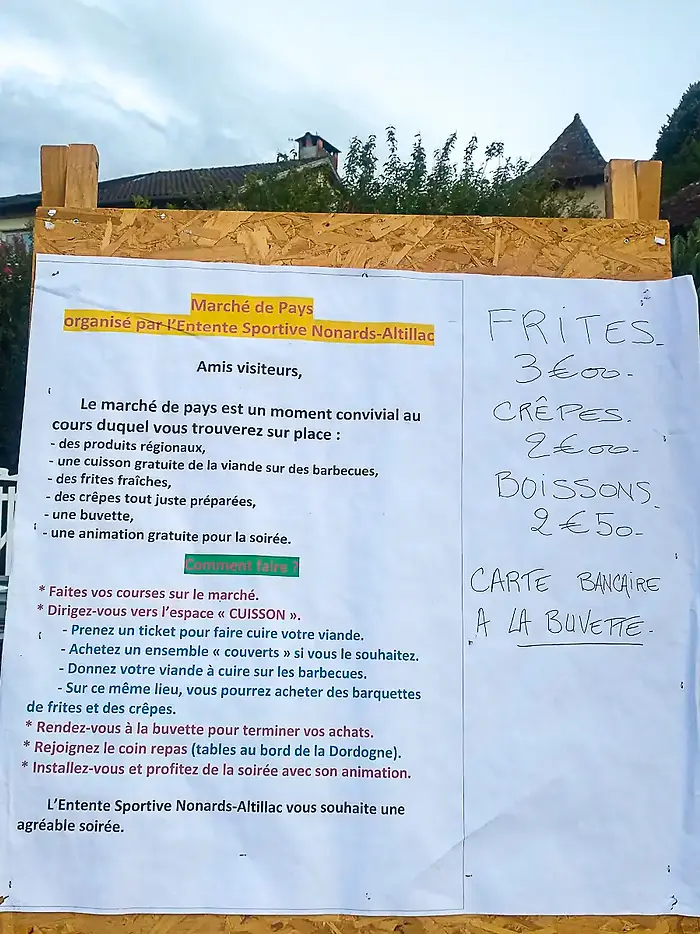 Marché de Pays
organisé par l'Entente Sportive Nonards-Altillac
Amis visiteurs,
Le marché de pays est un moment convivial au
cours duquel vous trouverez sur place :
- des produits régionaux,
- une cuisson gratuite de la viande sur des barbecues,
- des frites fraîches,
- des crêpes tout juste préparées,
- une buvette,
- une animation gratuite pour la soirée.
Comment faire ?
* Faites vos courses sur le marché.
* Dirigez-vous vers l'espace « CUISSON ».
- Prenez un ticket pour faire cuire votre viande.
- Achetez un ensemble « couverts » si vous le souhaitez.
- Donnez votre viande à cuire sur les barbecues.
- Sur ce même lieu, vous pourrez acheter des barquettes
de frites et des crêpes.
* Rendez-vous à la buvette pour terminer vos achats.
* Rejoignez le coin repas (tables au bord de la Dordogne).
* Installez-vous et profitez de la soirée avec son animation.
L'Entente Sportive Nonards-Altillac vous souhaite une
agréable soirée.
FRITES.
3€00.
CRÊPES.
2€00.
BOISSONS.
2€50.
CARTE BANCAIRE
A LA BUVETTE.